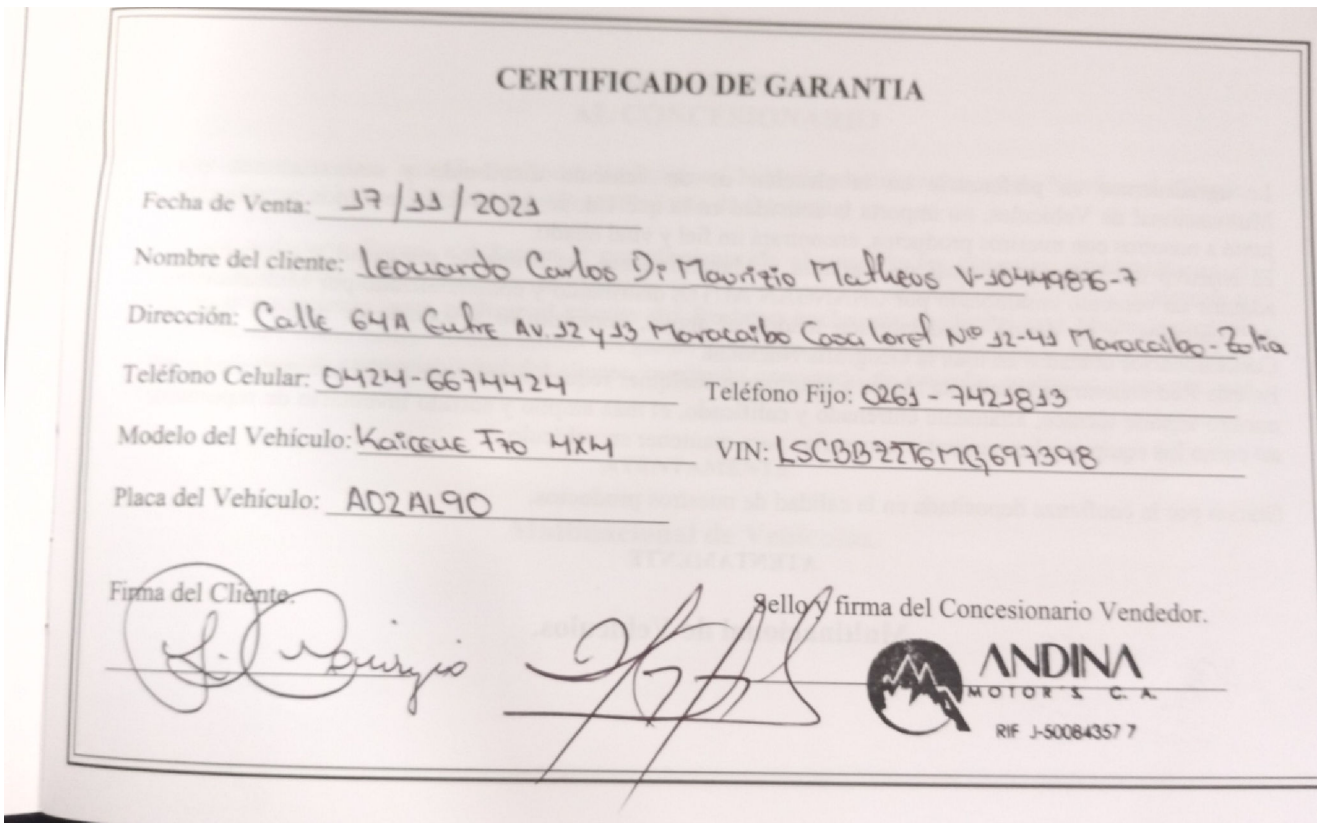 CERTIFICADO DE GARANTIA
Fecha de Venta: 17/11/2021
Nombre del cliente: Leonardo Carlos Di Maurizio Matheus V-10449876-7
Dirección: Calle 64A Entre Av. 12 y 13 Maracaibo Casa loret Nº 12-41 Maracaibo-Zulia
Teléfono Celular: 0424-6674424 Teléfono Fijo: 0261-7421813
Modelo del Vehículo: Kaicene F70 4X4 VIN: LSCBBZZT6MG697398
Placa del Vehículo: A02AL9O
Firma del Cliente. Sello y firma del Concesionario Vendedor.
ANDINA
MOTOR'S C. A.
RIF J-50084357 7